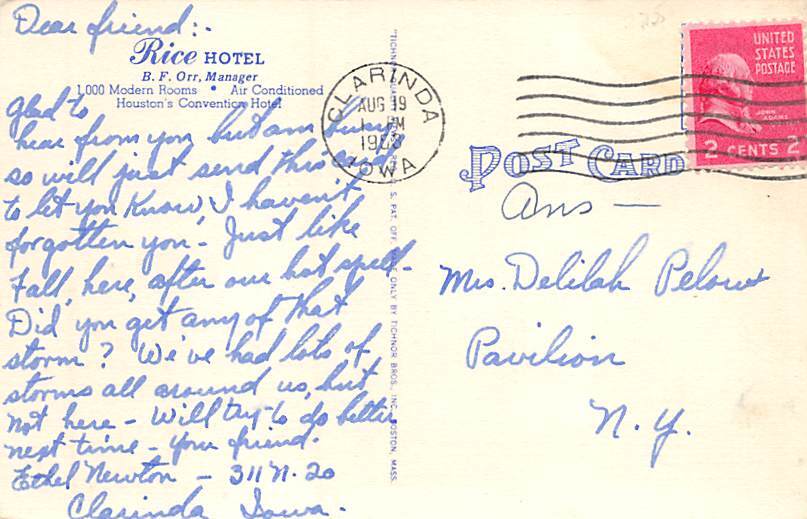 Dear friend:-
Rice HOTEL
B. F. Orr, Manager
1,000 Modern Rooms • Air Conditioned
Houston's Convention Hotel
Glad to
hear from you but am busy
so will just send this card
to let you know, I haven't
forgotten you - Just like
Fall, here, after our hot spell -
Did you get any of that
storm? We've had lots of
storms all around us, but
not here - Will try to do better
next time - your friend.
Ethel Newton - 311 N. 20
Clarinda Iowa.
CLARINDA
AUG 19
PM
IOWA
BROS., INC., BOSTON, MASS.
UNITED
STATES
POSTAGE
JOHN
ADAMS
2 CENTS 2
POST CARD
Ans -
Mrs. Delilah
Pavilion
N.Y.